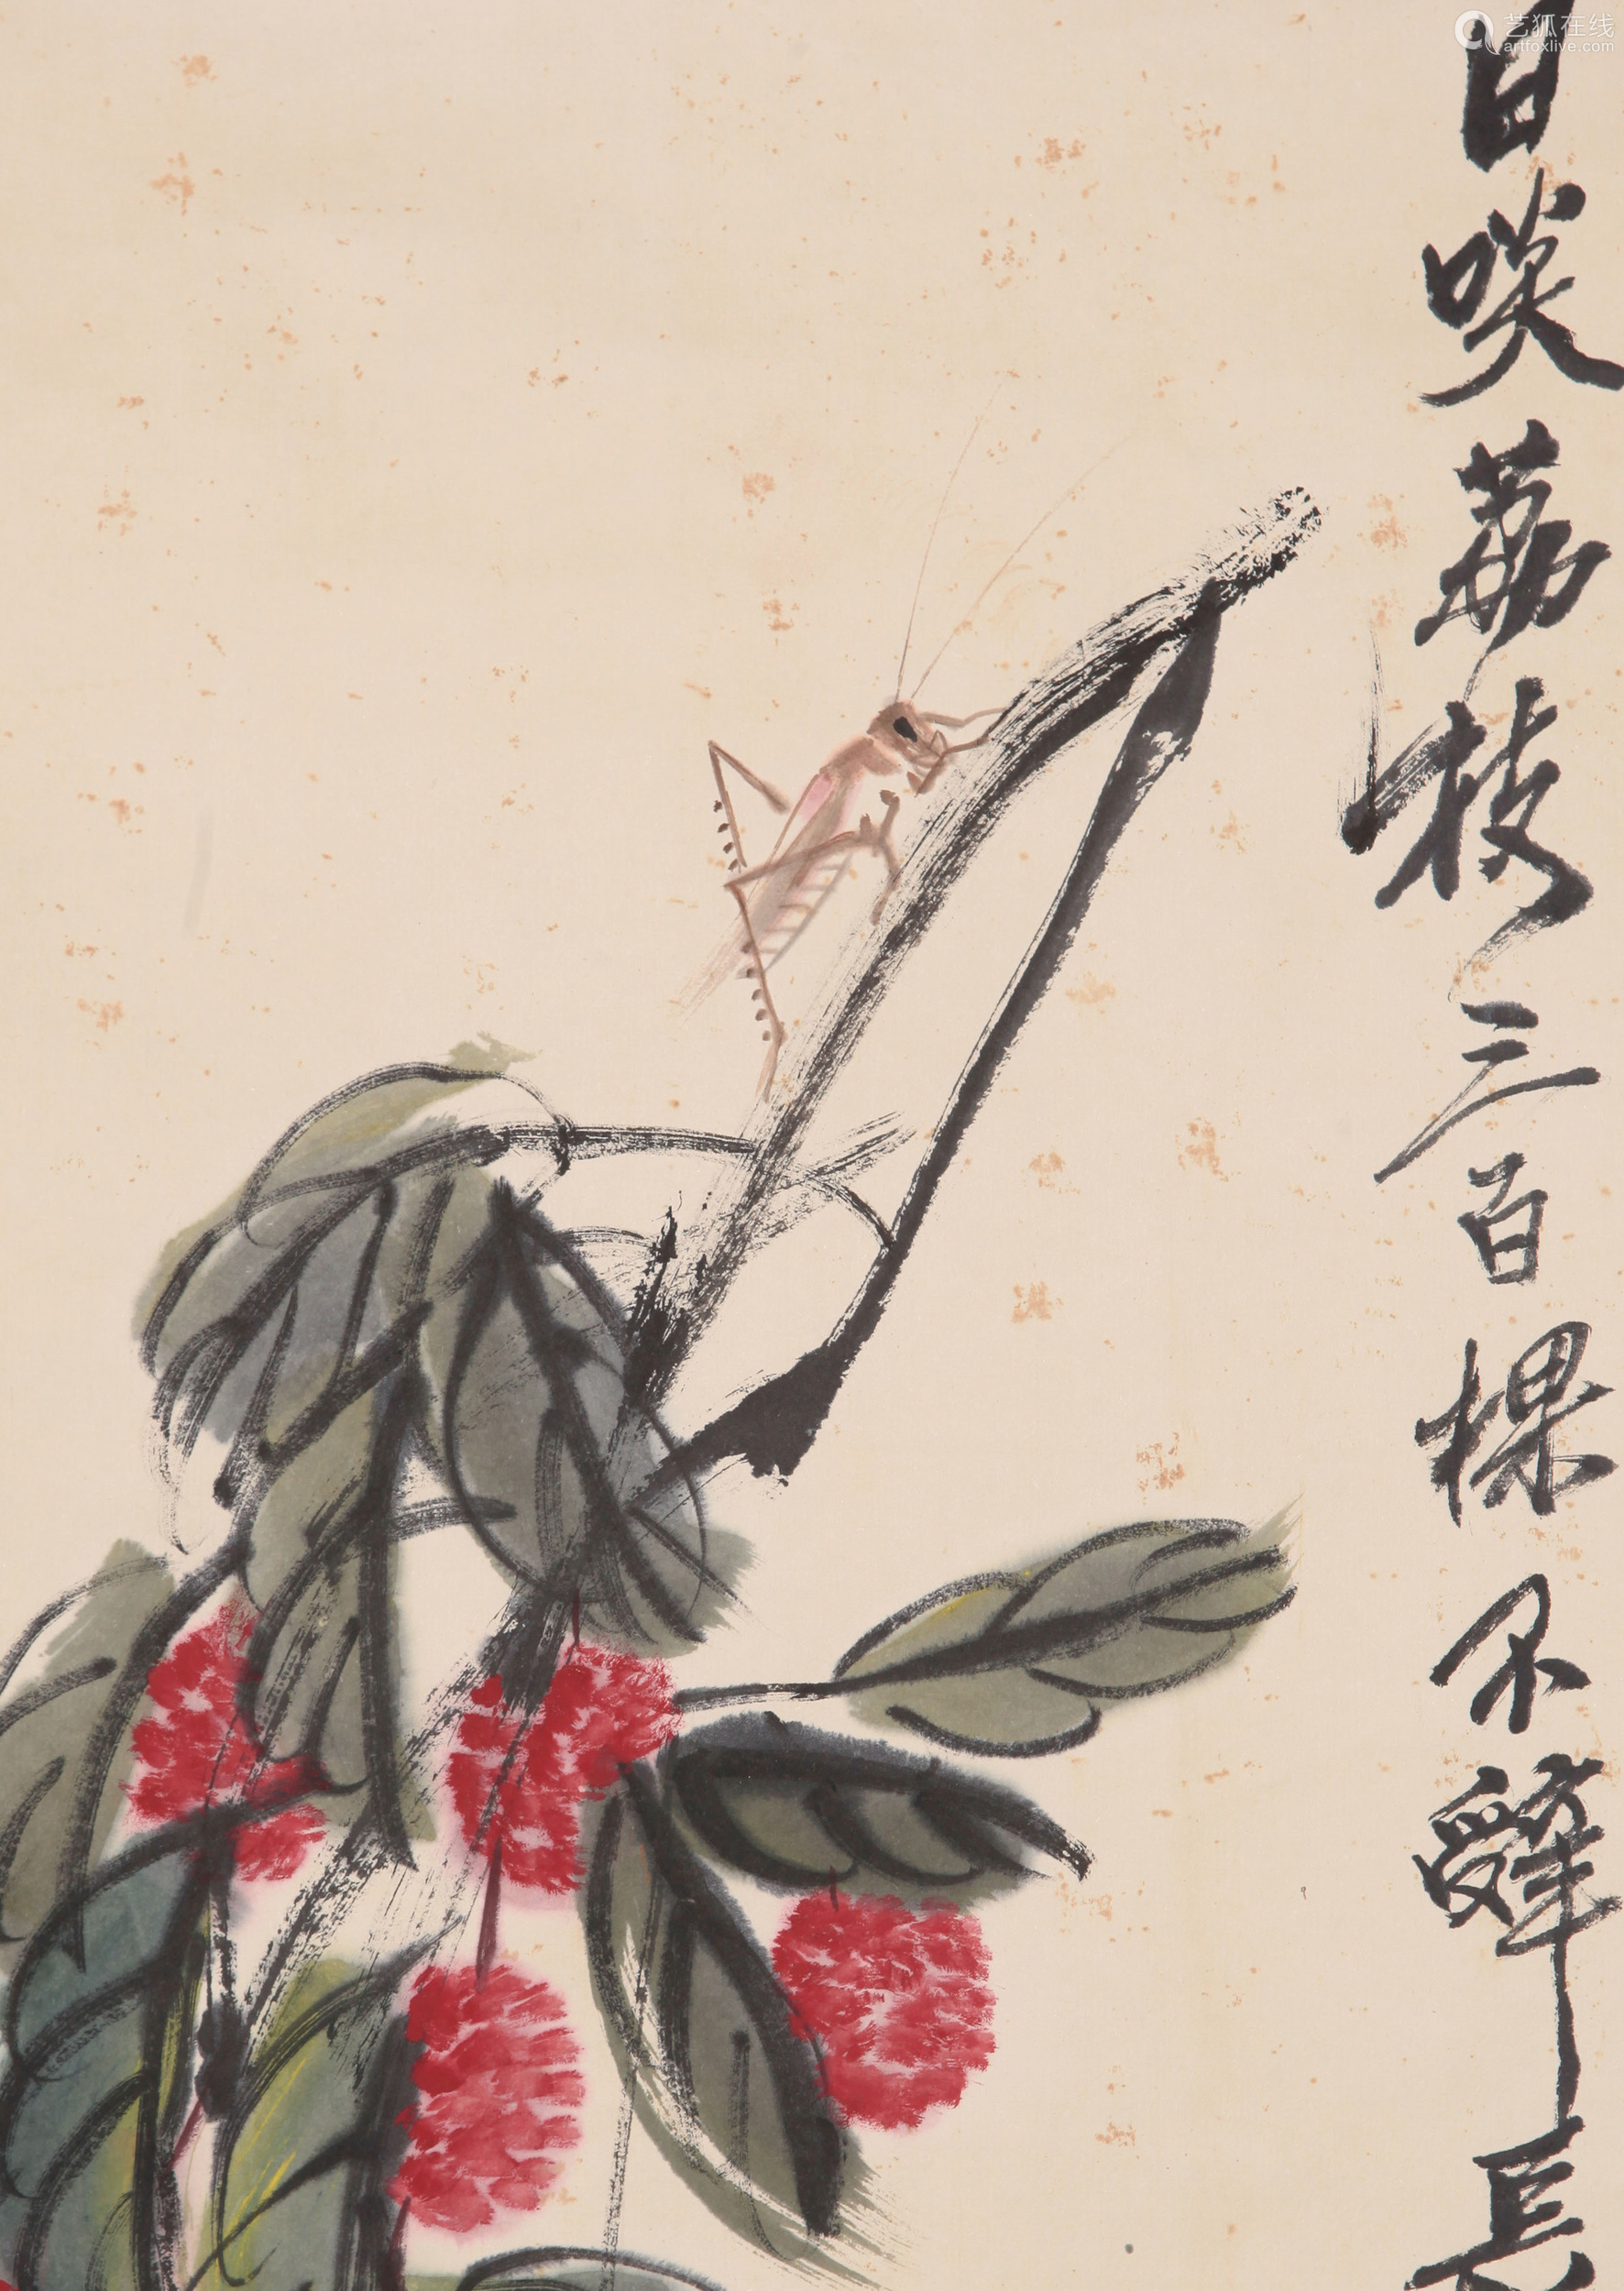 艺狐在线
artfoxlive.com
日啖荔枝三百棵不辤長